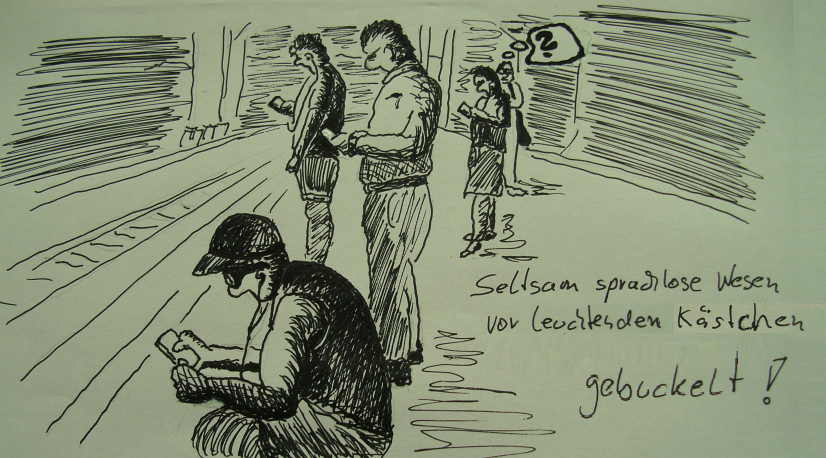 ?
Seltsam sprachlose Wesen
vor leuchtenden Kästchen
gebuckelt !